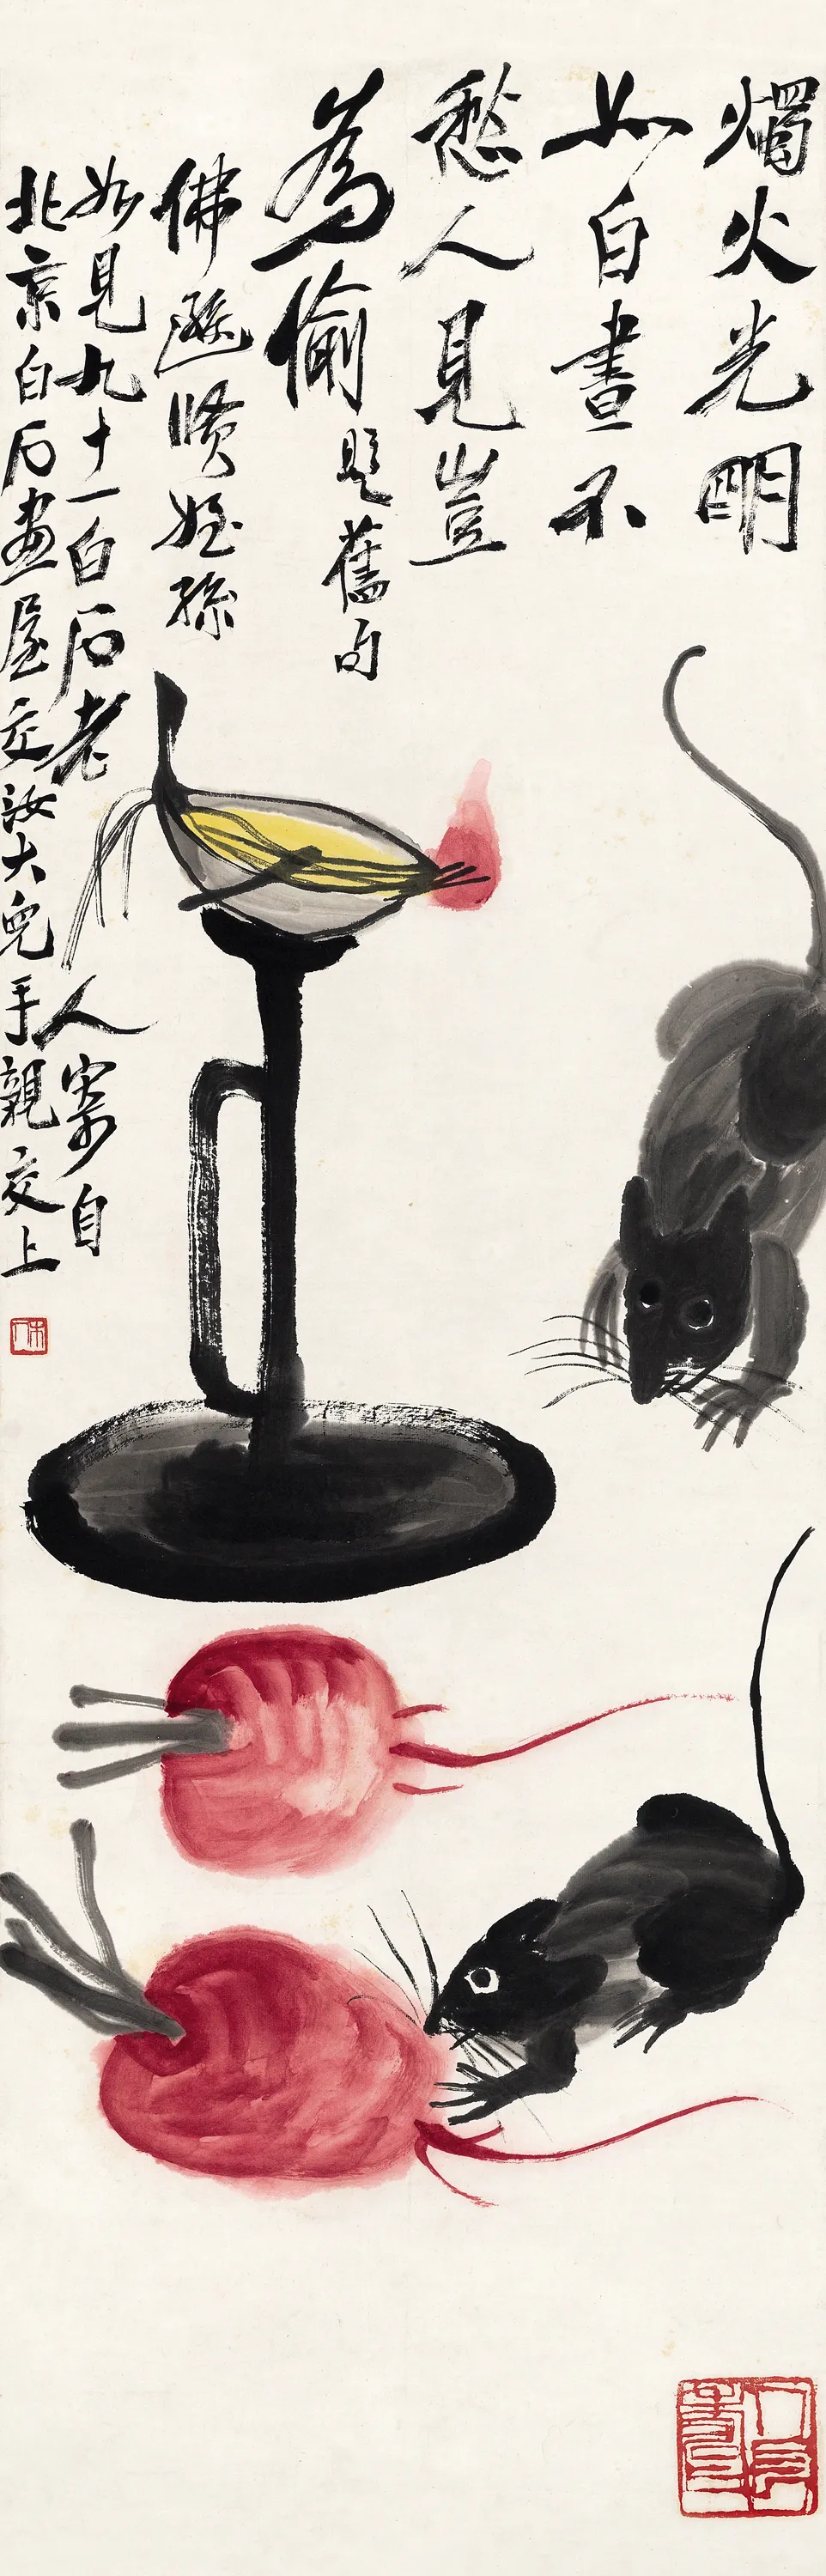 燭火光明
如白晝不
愁人見豈
為偷題舊句
佛遜賢姪孫
如見九十一白石老人寄自
北京白石畫屋交汝大兒手親交上
木人